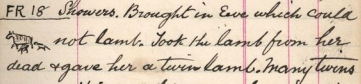 FR 18 Showers. Brought in Ewe which could
not lamb. Took the lamb from her
dead & gave her a twin lamb. Many twins